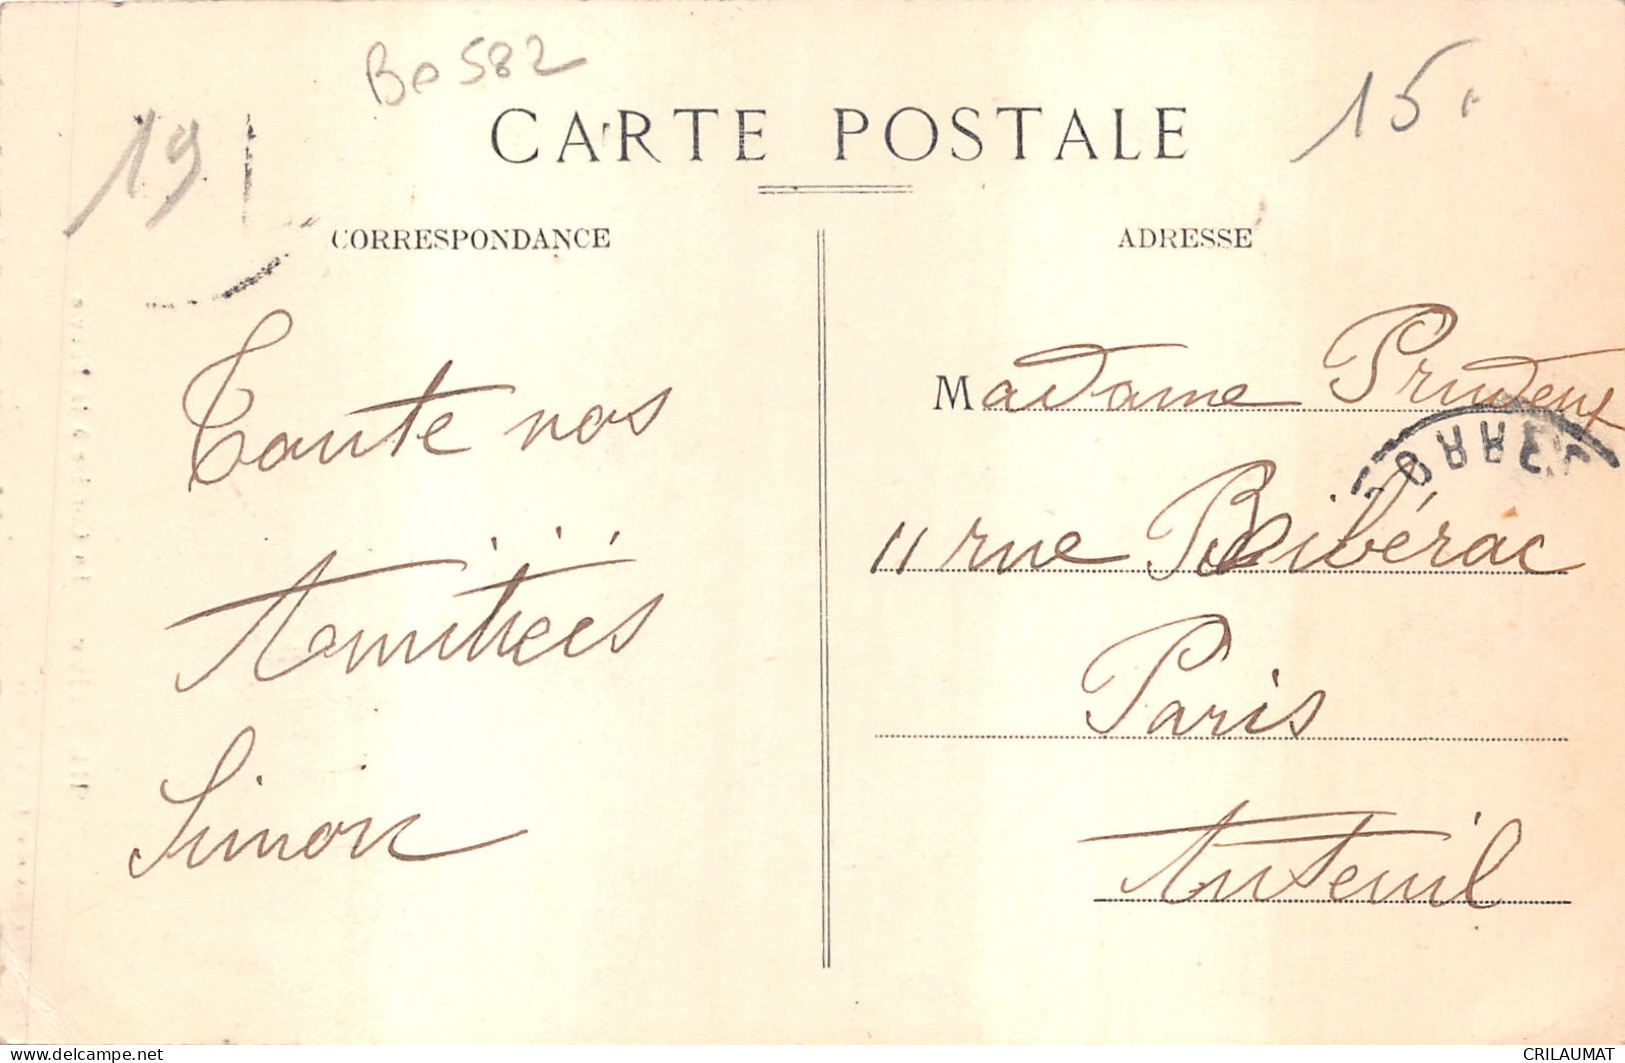 Be 582
19
15
CARTE POSTALE
CORRESPONDANCE
ADRESSE
Toute nos
Amitiées
Simon
Madame Prudent
11 rue Bibérac
Paris
Auteuil
CORRÈZE
CRILAUMAT